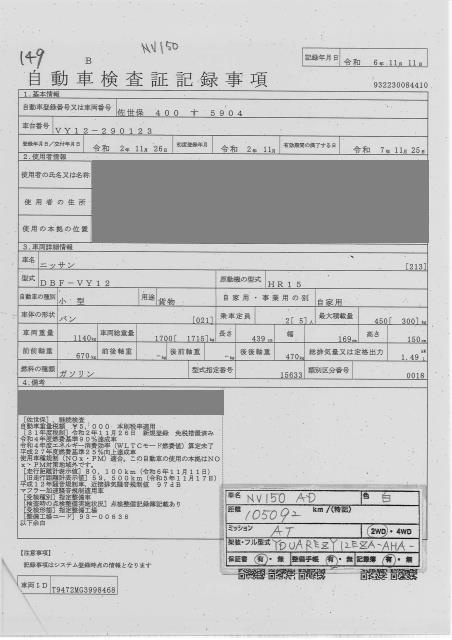 149
B
NV150
記録年月日 令和 6年 11月 11日
自動車検査証記録事項
932230084410
1.基本情報
自動車登録番号又は車両番号 佐世保 400 す 5904
車台番号 VY12-290123
登録年月日/交付年月日 令和 2年 11月 26日 初度登録年月 令和 2年 11月 有効期間の満了する日 令和 7年 11月 25日
2.使用者情報
使用者の氏名又は名称
使用者の住所
使用の本拠の位置
3.車両詳細情報
車名 ニッサン [213]
型式 DBF-VY12 原動機の型式 HR15
自動車の種別 小型 用途 貨物 自家用・事業用の別 自家用
車体の形状 バン [021] 乗車定員 2[ 5]人 最大積載量 450[ 300]kg
車両重量 1140kg 車両総重量 1700[ 1715]kg 長さ 439cm 幅 169cm 高さ 150cm
前前軸重 670kg 前後軸重 -kg 後前軸重 -kg 後後軸重 470kg 総排気量又は定格出力 1.49L
燃料の種類 ガソリン 型式指定番号 15633 類別区分番号 0018
4.備考
[佐世保]、継続検査
自動車重量税額 ¥5,000 本則税率適用
[31年度税制]令和2年11月26日 新規登録 免税措置済み
令和4年度燃費基準90%達成車
令和4年度エネルギー消費効率(WLTCモード燃費値)算定未了
平成27年度燃費基準25%向上達成車
使用車種規制(NOx・PM)適合、この自動車の使用の本拠はNO
x・PM対策地域外です。
[走行距離計表示値]80,100km(令和6年11月11日)
[旧走行距離計表示値]59,500km(令和5年11月17日)
平成12年騒音規制車、近接排気騒音規制値 97dB
マフラー加速騒音規制適用車
[受検種別]指定整備車
[検査時の点検整備実施状況]点検整備記録簿記載あり
[受検形態]指定整備工場
[整備工場コード]93-00636
以下余白
車名 NV150 AD 色 白
距離 105092 km/(時間)
ミッション AT 2WD・4WD
架装・フル型式 YDUAREZY12EZA-AHA-
保証書 有・無 整備手帳 有・無 記録簿 有・無
[注意事項]
記録事項はシステム登録時点の情報となります
車両ID T9472MG3998468